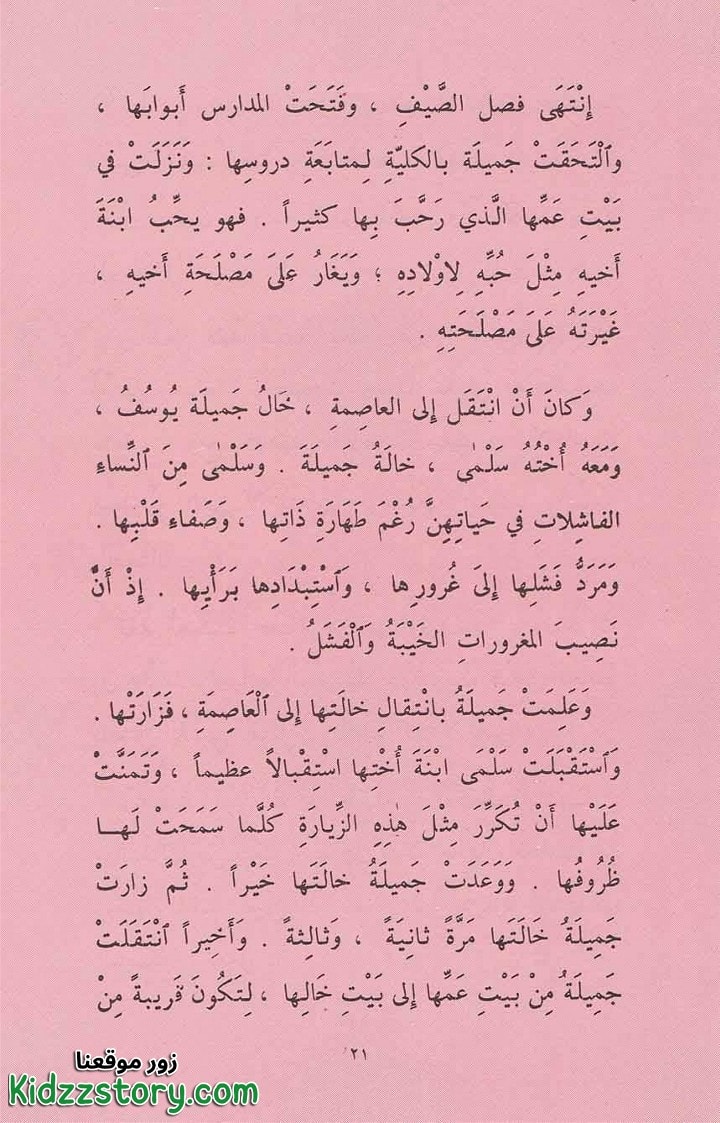 إِنْتَهَى فصل الصَّيْفِ ، وفَتَحَتْ المدارس أَبوابَها ،
وٱلْتَحَقَتْ جَميلَة بالكليّةِ لِمتابَعَةِ دروسِها : وَنَزَلَتْ في
بَيْتِ عَمِّها الَّذي رَحَّبَ بِها كثيراً . فهو يحِّبُ ابْنَةَ
أَخيهِ مِثْلَ حُبِّهِ لِاوْلادِهِ ؛ وَيَغَارُ عَلىَ مَصْلَحَةِ أَخيهِ ،
غَيْرَتَهُ عَلىَ مَصْلَحَتِهِ .
وَكانَ أَنْ انْتَقَل إِلى العاصِمةِ ، خَالُ جَميلَة يُوسُفُ ،
وَمَعَهُ أُخْتُهُ سَلْمٰى ، خالَةُ جَميلَةَ . وَسَلْمٰى مِنَ ٱلنِّساءِ
الفاشِلاتِ في حَياتِهِنَّ رُغْمَ طَهَارَةِ ذَاتِها ، وَصَفاءِ قَلْبِها .
وَمَرَدُّ فَشَلِها إِلىَ غُرورِها ، وَٱسْتِبْدَادِها بَرَأْيِها . إِذْ أَنَّ
نَصِيبَ المغروراتِ الخَيْبَةُ وَٱلْفَشَلُ .
وَعَلِمَتْ جَميلَةُ بانْتِقالِ خالَتِها إِلى ٱلْعَاصِمَةِ ، فَزَارَتْها .
وَٱسْتَقْبَلَتْ سَلْمَى ابْنَةَ أُخْتِها اسْتِقْبالاً عظيماً ، وَتَمَنَّت
عَلَيْها أَنْ تُكَرِّرَ مِثْلَ هٰذِهِ الزِّيارَةِ كُلَّما سَمَحَتْ لَهـا
ظُرُوفُها . وَوَعَدَتْ جَميلَةُ خالَتَها خَيْراً . ثُمَّ زارَتْ
جَمِيلَةُ خَالَتَها مَرَّةً ثانِيَةً ، وَثالِثةً . وَأَخيراً ٱنْتَقَلَتْ
جَمِيلَةُ مِنْ بَيْتِ عَمِّها إِلى بَيْتِ خَالِها ، لِتَكُونَ قَريبةً مِنْ
٢١
زور موقعنا
Kidzzstory.com